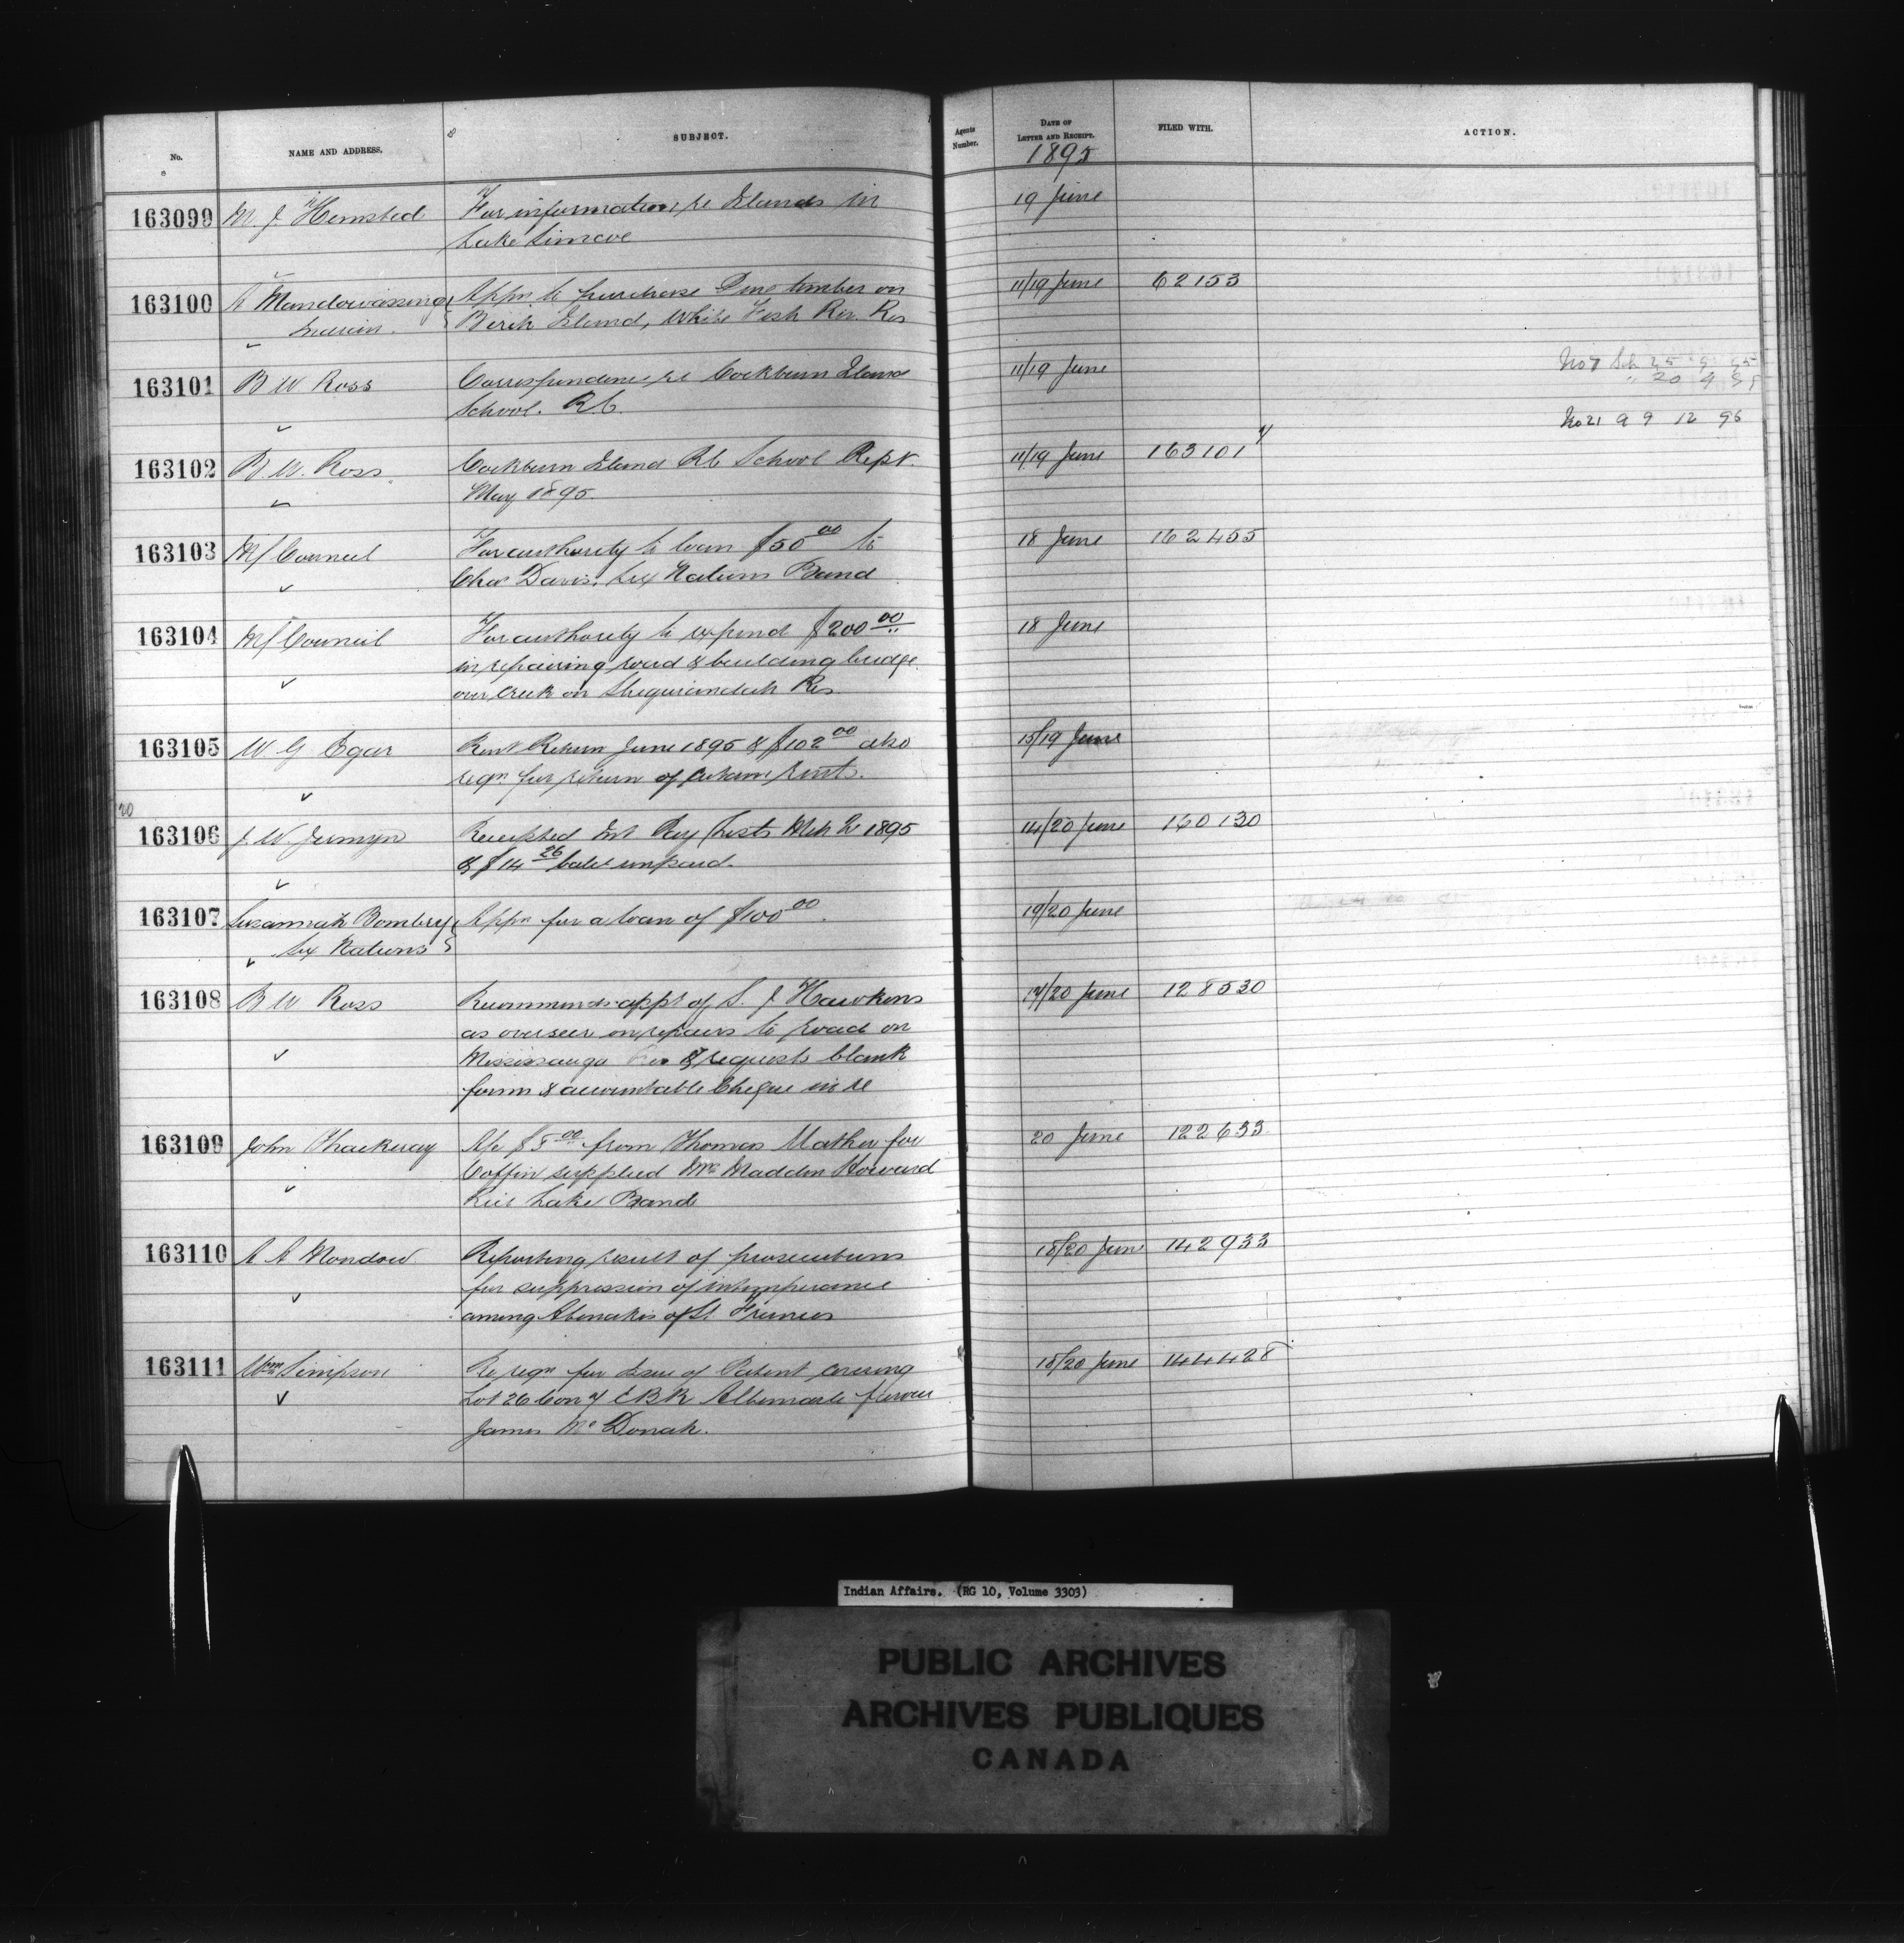 No.
NAME AND ADDRESS.
SUBJECT.
Agents Number.
DATE OF LETTER AND RECEIPT.
1895
FILED WITH.
ACTION.
163099 M. J. Hemsted For information re Islands in 19 June
Lake Simcoe
163100 Appn to purchase Pine timber on 11/19 June 62153
Birch Island, White Fish Riv. Res
163101 B W Ross Correspondence re Cockburn Island 11/19 June
School. R.C.
No 21 9 9 12 96
163102 B. W. Ross Cockburn Island RC School Rept. 11/19 June 163101
May 1895.
163103 Council For authority to loan $50 00 to 18 June 162455
Chas Davis, Six Nations Band
163104 Council For authority to expend $200 00 18 June
in repairing road & building bridge
over creek on Sheguiandah Res
163105 W G Egar Rent Return June 1895 & $102 00 also 15/19 June
reqn for return of rents.
20
163106 J. W. Jermyn Receipted Int Pay Lists 1895 14/20 June 160130
of $14 26 unpaid.
163107 Susannah Bomberry Appn for a loan of $100 00. 19/20 June
Six Nations
163108 B W Ross Recommends appt of S. J. Hawkins 14/20 June 128530
as overseer on repairs to road on
Mississauga & requests blank
forms & accountable Cheque in re
163109 John Thackeray A/c $5 00 from Thomas Mather for 20 June 122633
Coffin supplied Mrs Madden Howard
Rice Lake Band
163110 A A Mondow Reporting result of prosecutions 18/20 June 142933
for suppression of intemperance
among Abenakis of St Francis
163111 Wm Simpson Re reqn for Issue of Patent covering 18/20 June 144428
Lot 26 Con 4 E B R Albemarle favour
James
Indian Affairs. (RG 10, Volume 3303)
PUBLIC ARCHIVES
ARCHIVES PUBLIQUES
CANADA